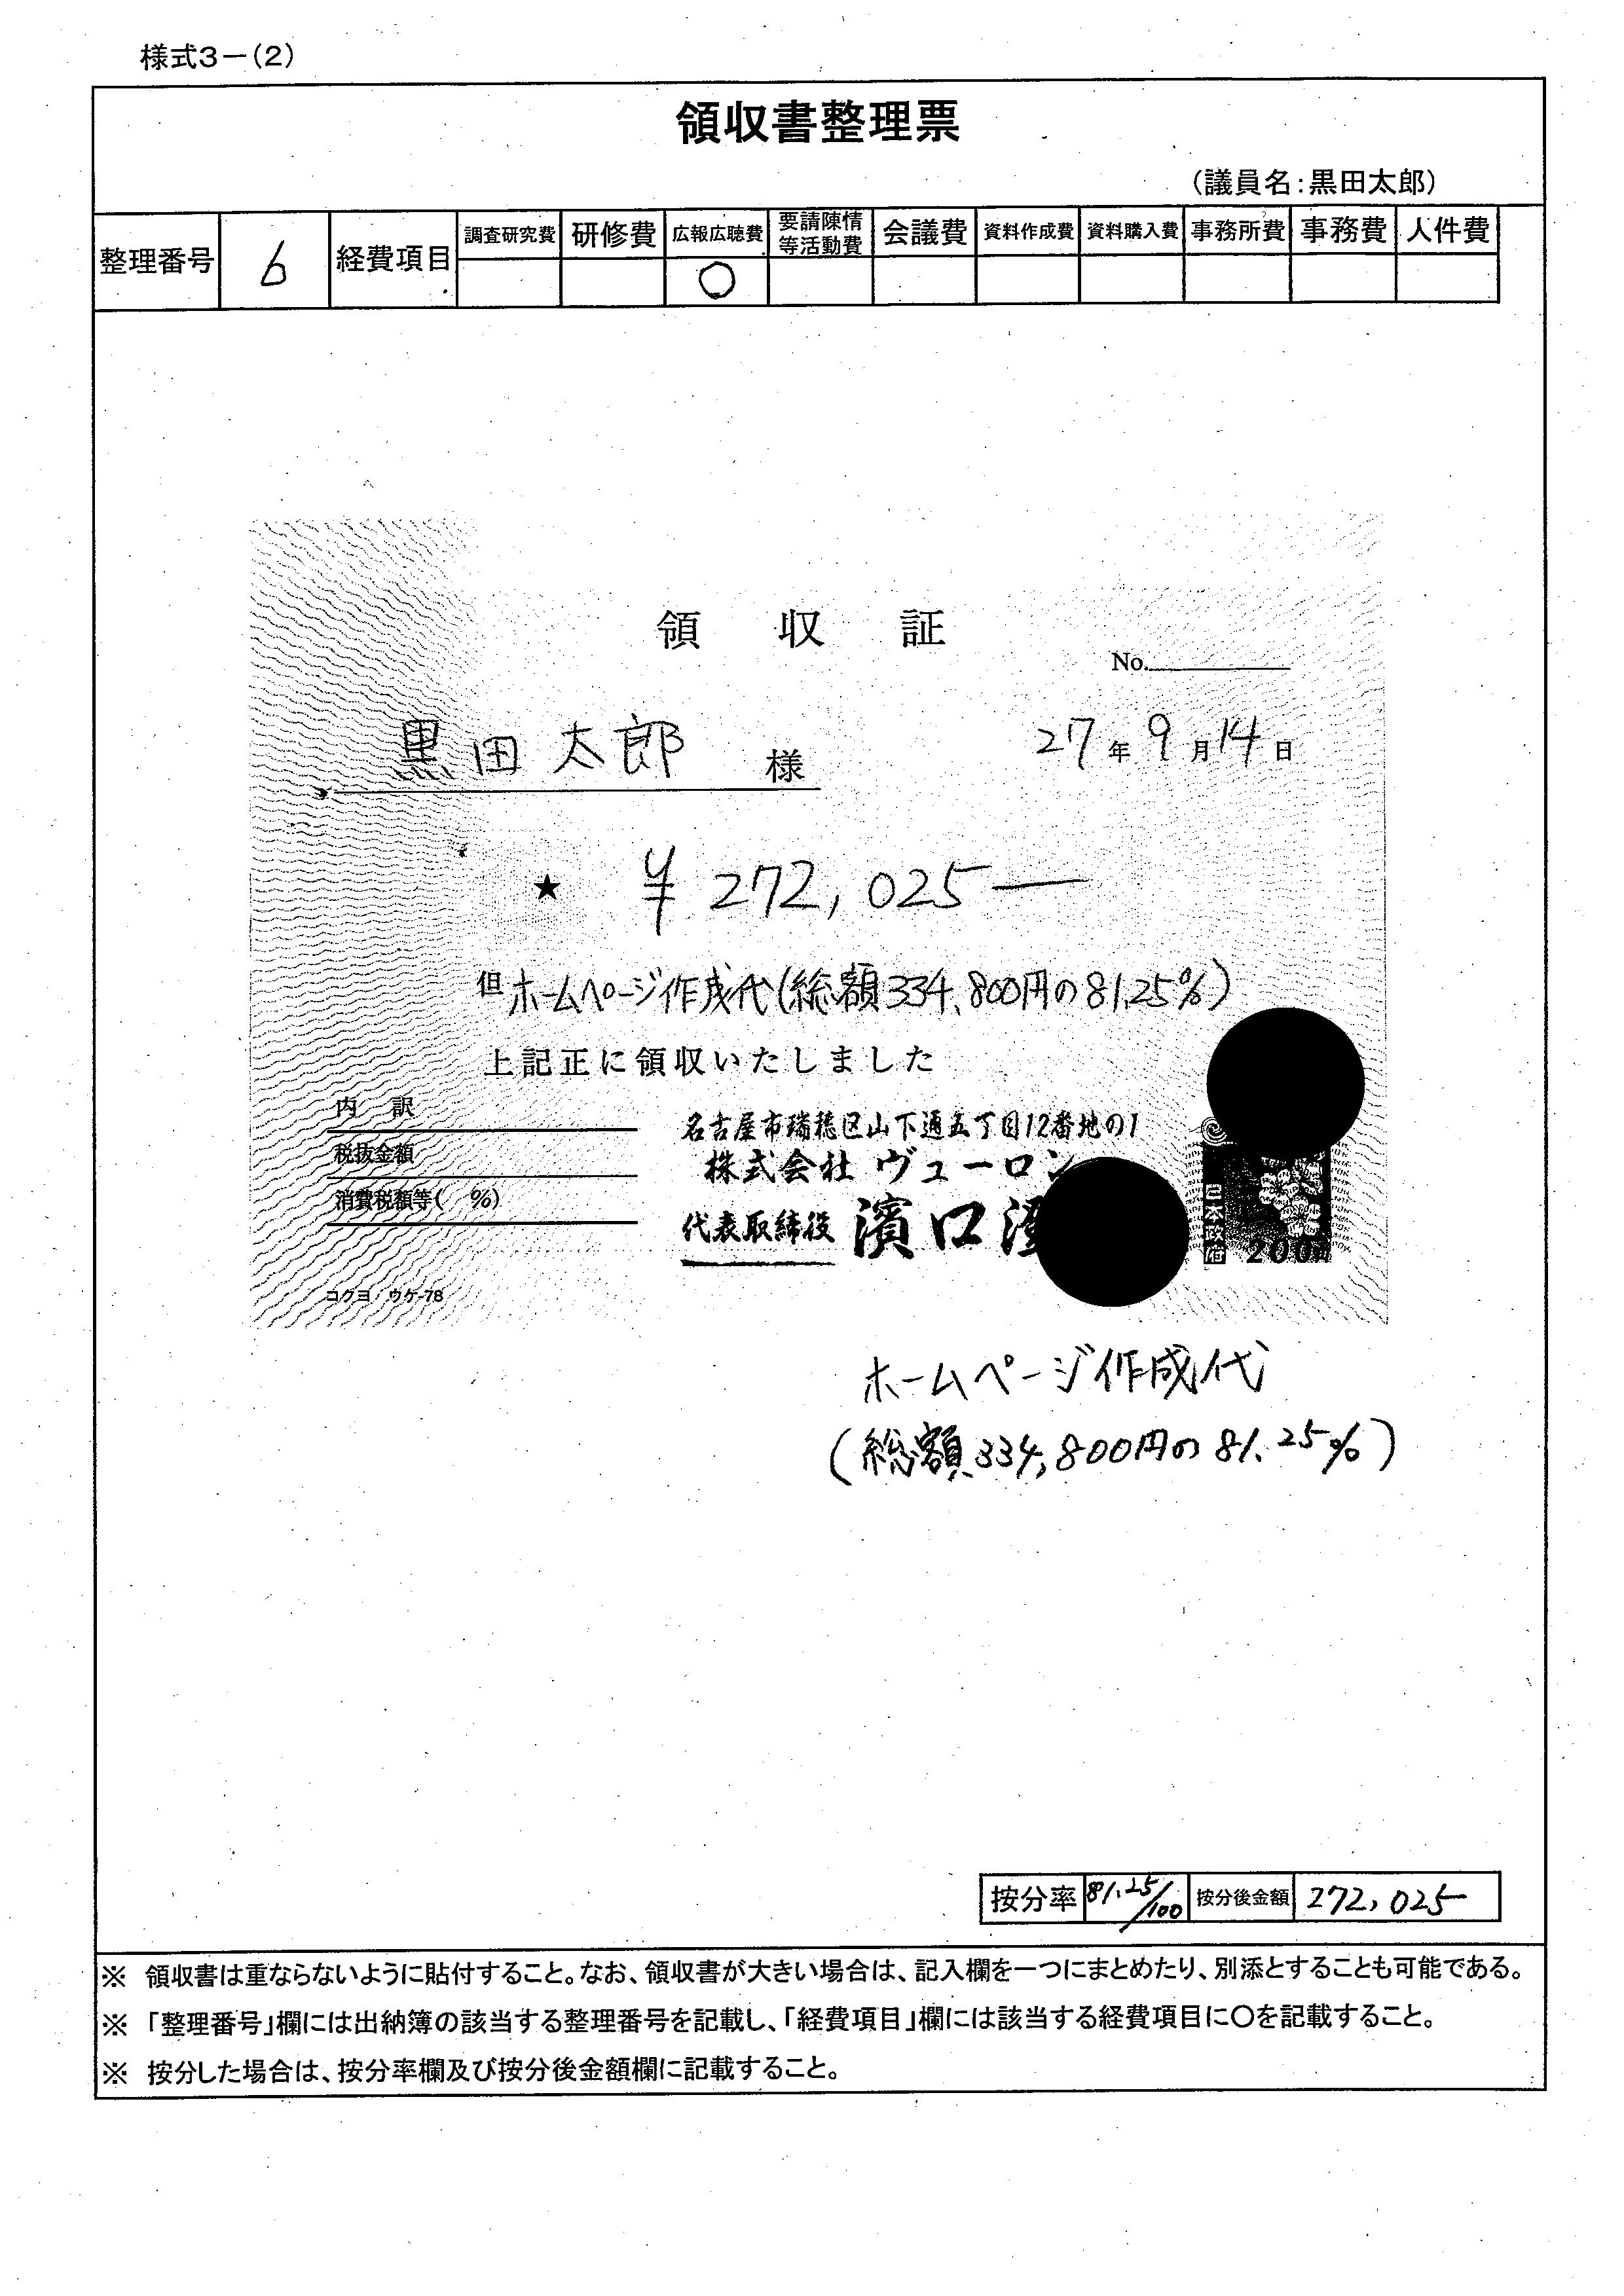 様式3－(2)
領収書整理票
(議員名:黒田太郎)
整理番号 6 経費項目 調査研究費 研修費 広報広聴費 要請陳情等活動費 会議費 資料作成費 資料購入費 事務所費 事務費 人件費
○
領収証
No.
黒田太郎 様 27年9月14日
★ ¥272,025―
但 ホームページ作成代(総額334,800円の81.25%)
上記正に領収いたしました
内訳
税抜金額
消費税額等( %)
名古屋市瑞穂区山下通五丁目12番地の1
株式会社 ヴューロン
代表取締役 濱口
日本政府
200円
コクヨ ウケ-78
ホームページ作成代
(総額334,800円の81.25%)
按分率 81.25/100 按分後金額 272,025―
※ 領収書は重ならないように貼付すること。なお、領収書が大きい場合は、記入欄を一つにまとめたり、別添とすることも可能である。
※ 「整理番号」欄には出納簿の該当する整理番号を記載し、「経費項目」欄には該当する経費項目に○を記載すること。
※ 按分した場合は、按分率欄及び按分後金額欄に記載すること。